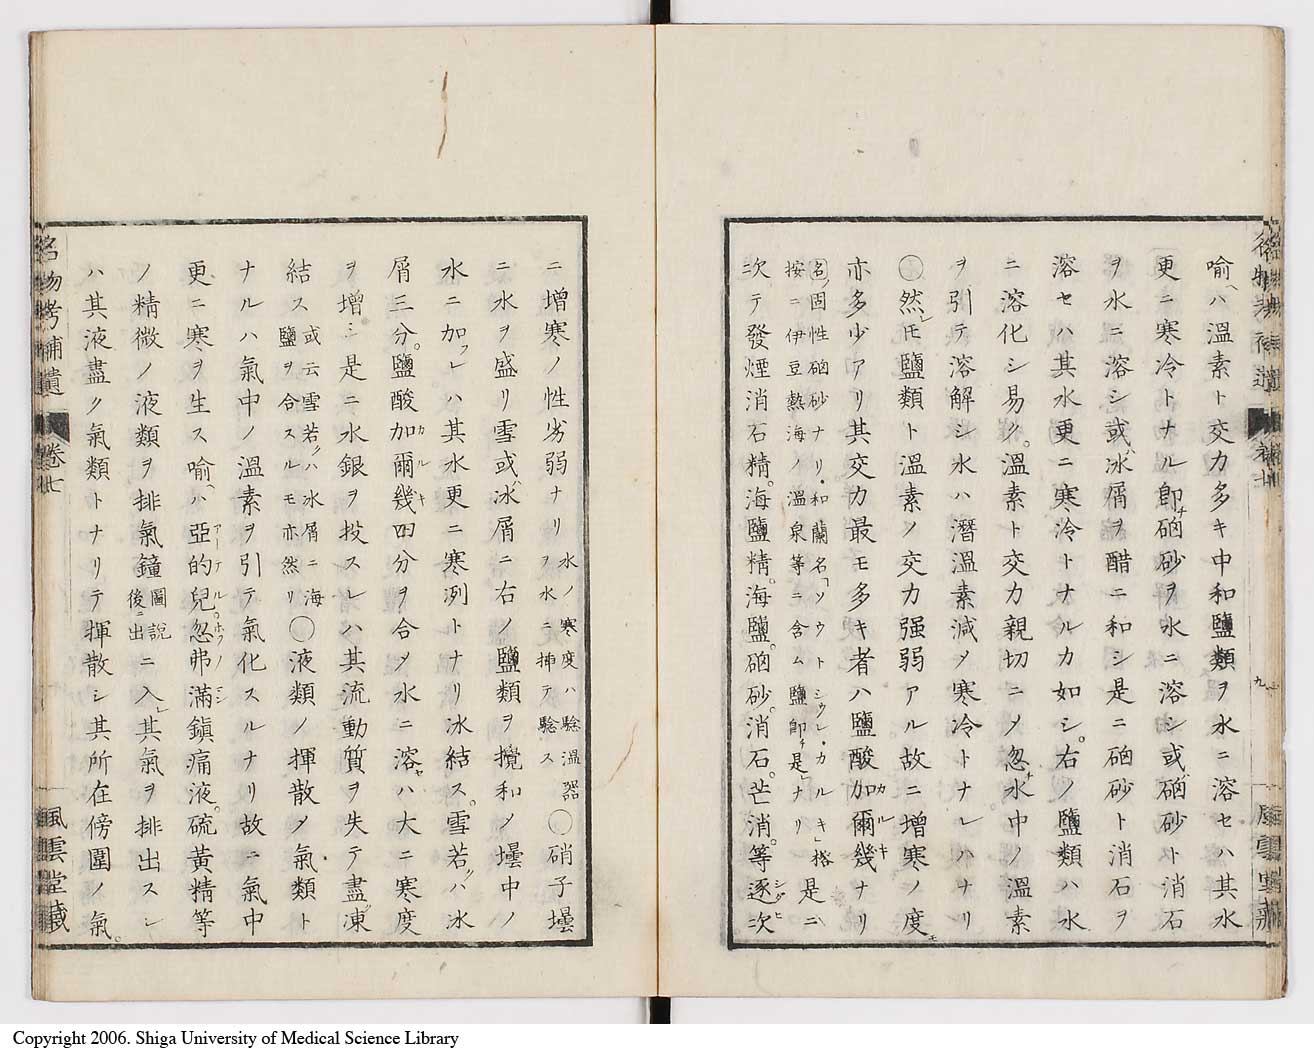 喩ヘハ溫素ト交力多キ中和鹽類ヲ水ニ溶セハ其水
更ニ寒冷トナル卽チ硇砂ヲ水ニ溶シ或ハ硇砂ト消石
ヲ水ニ溶シ或ハ冰屑ヲ醋ニ和シ是ニ硇砂ト消石ヲ
溶セハ其水更ニ寒冷トナルカ如シ。右ノ鹽類ハ水
ニ溶化シ易ク。溫素ト交力親切ニメ忽チ水中ノ溫素
ヲ引テ溶解シ水ハ潛溫素減メ寒冷トナレハナリ
○然レモ鹽類ト溫素ノ交力强弱アル故ニ增寒ノ度モ
亦多少アリ其交力最モ多キ者ハ鹽酸加爾幾カルキナリ
名ノ固性硇砂ナリ・和蘭名「ソウトシウレ・カルキ」
按ニ伊豆熱海ノ溫泉等ニ含ム鹽卽チ是ナリ
是ニ
次テ發煙消石精。海鹽精。海鹽。硇砂。消石。芒消。等逐次シダヒ
ニ增寒ノ性劣弱ナリ
水ノ寒度ハ驗溫器
ヲ水ニ揷テ驗ス
○硝子壜
ニ水ヲ盛リ雪或ハ冰屑ニ右ノ鹽類ヲ攪和ノ壜中ノ
水ニ加フレハ其水更ニ寒冽トナリ冰結ス。雪若クハ冰
屑三分。鹽酸加爾幾カルキ四分ヲ合メ水ニ溶セハ大ニ寒度
ヲ增ミ是ニ水銀ヲ投スレハ其流動質ヲ失テ盡ク凍
結ス
或云雪若クハ冰屑ニ海
鹽ヲ合スルモ亦然リ
○液類ノ揮散メ氣類ト
ナルハ氣中ノ溫素ヲ引テ氣化スルナリ故ニ氣中
更ニ寒ヲ生ス喩ヘハ亞的兒アーテル。忽弗滿ホフマン鎭痛液。硫黃精等
ノ精微ノ液類ヲ排氣鐘
圖說
後ニ出
ニ入レ其氣ヲ排出スレ
ハ其液盡ク氣類トナリテ揮散シ其所在傍圍ノ氣。
名物考補遺 卷七
風雲堂藏